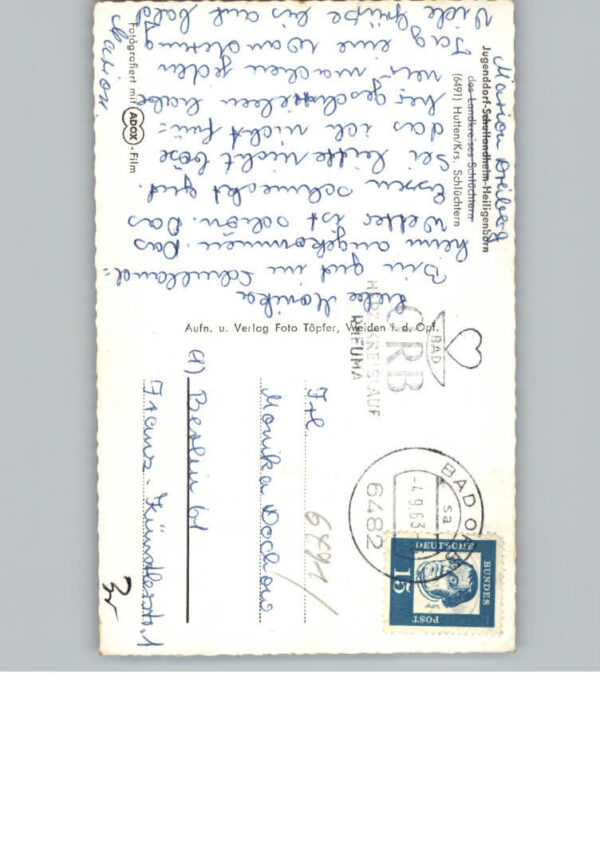 Marion
Jugenddorf-Schullandheim-Heiligenborn
des Landkreises Schlüchtern
(6491) Hutten/Krs. Schlüchtern
Liebe Monika
Bin gut im Schulland=
heim angekommen. Das
Wetter ist schön. Das
Essen schmeckt gut.
Sei bitte nicht böse
das ich nicht frü=
her geschrieben habe
wir machen jeden
Tag eine Wanderung
Viele Grüße bis auf bald
Marion.
Fotografiert mit ADOX-Film
Aufn. u. Verlag Foto Töpfer, Weiden i. d. Opf.
BAD
ORB
HERZ KREISLAUF
RHEUMA
BAD ORB
-4.9.63
6482
DEUTSCHE
BUNDES
POST
15
Luther
6491/
Frl.
Monika Dochow
(1) Berlin 61
Franz-Künstlerstr. 1